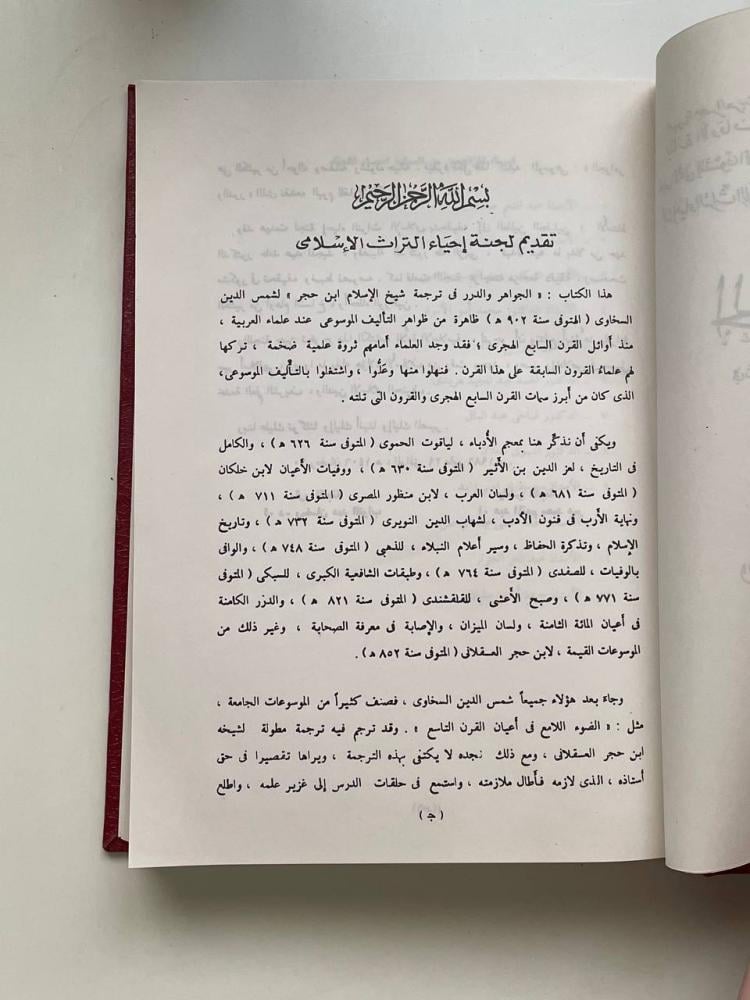 بسم الله الرحمن الرحيم
تقديم لجنة إحياء التراث الإسلامى
هذا الكتاب : « الجواهر والدرر فى ترجمة شيخ الإسلام ابن حجر » لشمس الدين
السخاوى ( المتوفى سنة ٩٠٢ ه ) ظاهرة من ظواهر التأليف الموسوعى عند علماء العربية ،
منذ أوائل القرن السابع الهجرى ؛ فقد وجد العلماء أمامهم ثروة علمية ضخمة ، تركها
لهم علماءُ القرون السابقة على هذا القرن . فنهلوا منها وعَلُّوا ، واشتغلوا بالتأْليف الموسوعى،
الذى كان من أبرز سمات القرن السابع الهجرى والقرون التى تلته .
ويكفى أن نذكر هنا بمعجم الأُدباء ، لياقوت الحموى ( المتوفى سنة ٦٢٦ ه ) ، والكامل
فى التاريخ ، لعز الدين بن الأَثير ( المتوفى سنة ٦٣٠ ه ) ، ووفيات الأَعيان لابن خلكان
( المتوفى سنة ٦٨١ ه ) ، ولسان العرب ، لابن منظور المصرى ( المتوفى سنة ٧١١ ه ) ،
ونهاية الأَرب فى فنون الأدب ، لشهاب الدين النويرى ( المتوفى سنة ٧٣٢ ه ) ، وتاريخ
الإسلام ، وتذكرة الحفاظ ، وسير أعلام النبلاء ، للذهبى ( المتوفى سنة ٧٤٨ ه ) ، والوافى
بالوفيات ، للصفدى ( المتوفى سنة ٧٦٤ ه ) ، وطبقات الشافعية الكبرى ، للسبكى ( المتوفى
سنة ٧٧١ ه ) ، وصبح الأَعشى ، للقلقشندى ( المتوفى سنة ٨٢١ ه ) ، والدرر الكامنة
فى أعيان المائة الثامنة ، ولسان الميزان ، والإصابة فى معرفة الصحابة ، وغير ذلك من
الموسوعات القيمة ، لابن حجر العسقلانى ( المتوفى سنة ٨٥٢ ه ) .
وجاءَ بعد هؤلاء جميعاً شمس الدين السخاوى ، فصنف كثيراً من الموسوعات الجامعة ،
مثل : « الضوء اللامع فى أعيان القرن التاسع » . وقد ترجم فيه ترجمة مطولة لشيخه
ابن حجر العسقلانى ، ومع ذلك نجده لا يكتفى بهذه الترجمة ، ويراها تقصيرا فى حق
أستاذه ، الذى لازمه فأَطال ملازمته ، واستمع فى حلقات الدرس إلى غزير علمه ، واطلع
( ج )